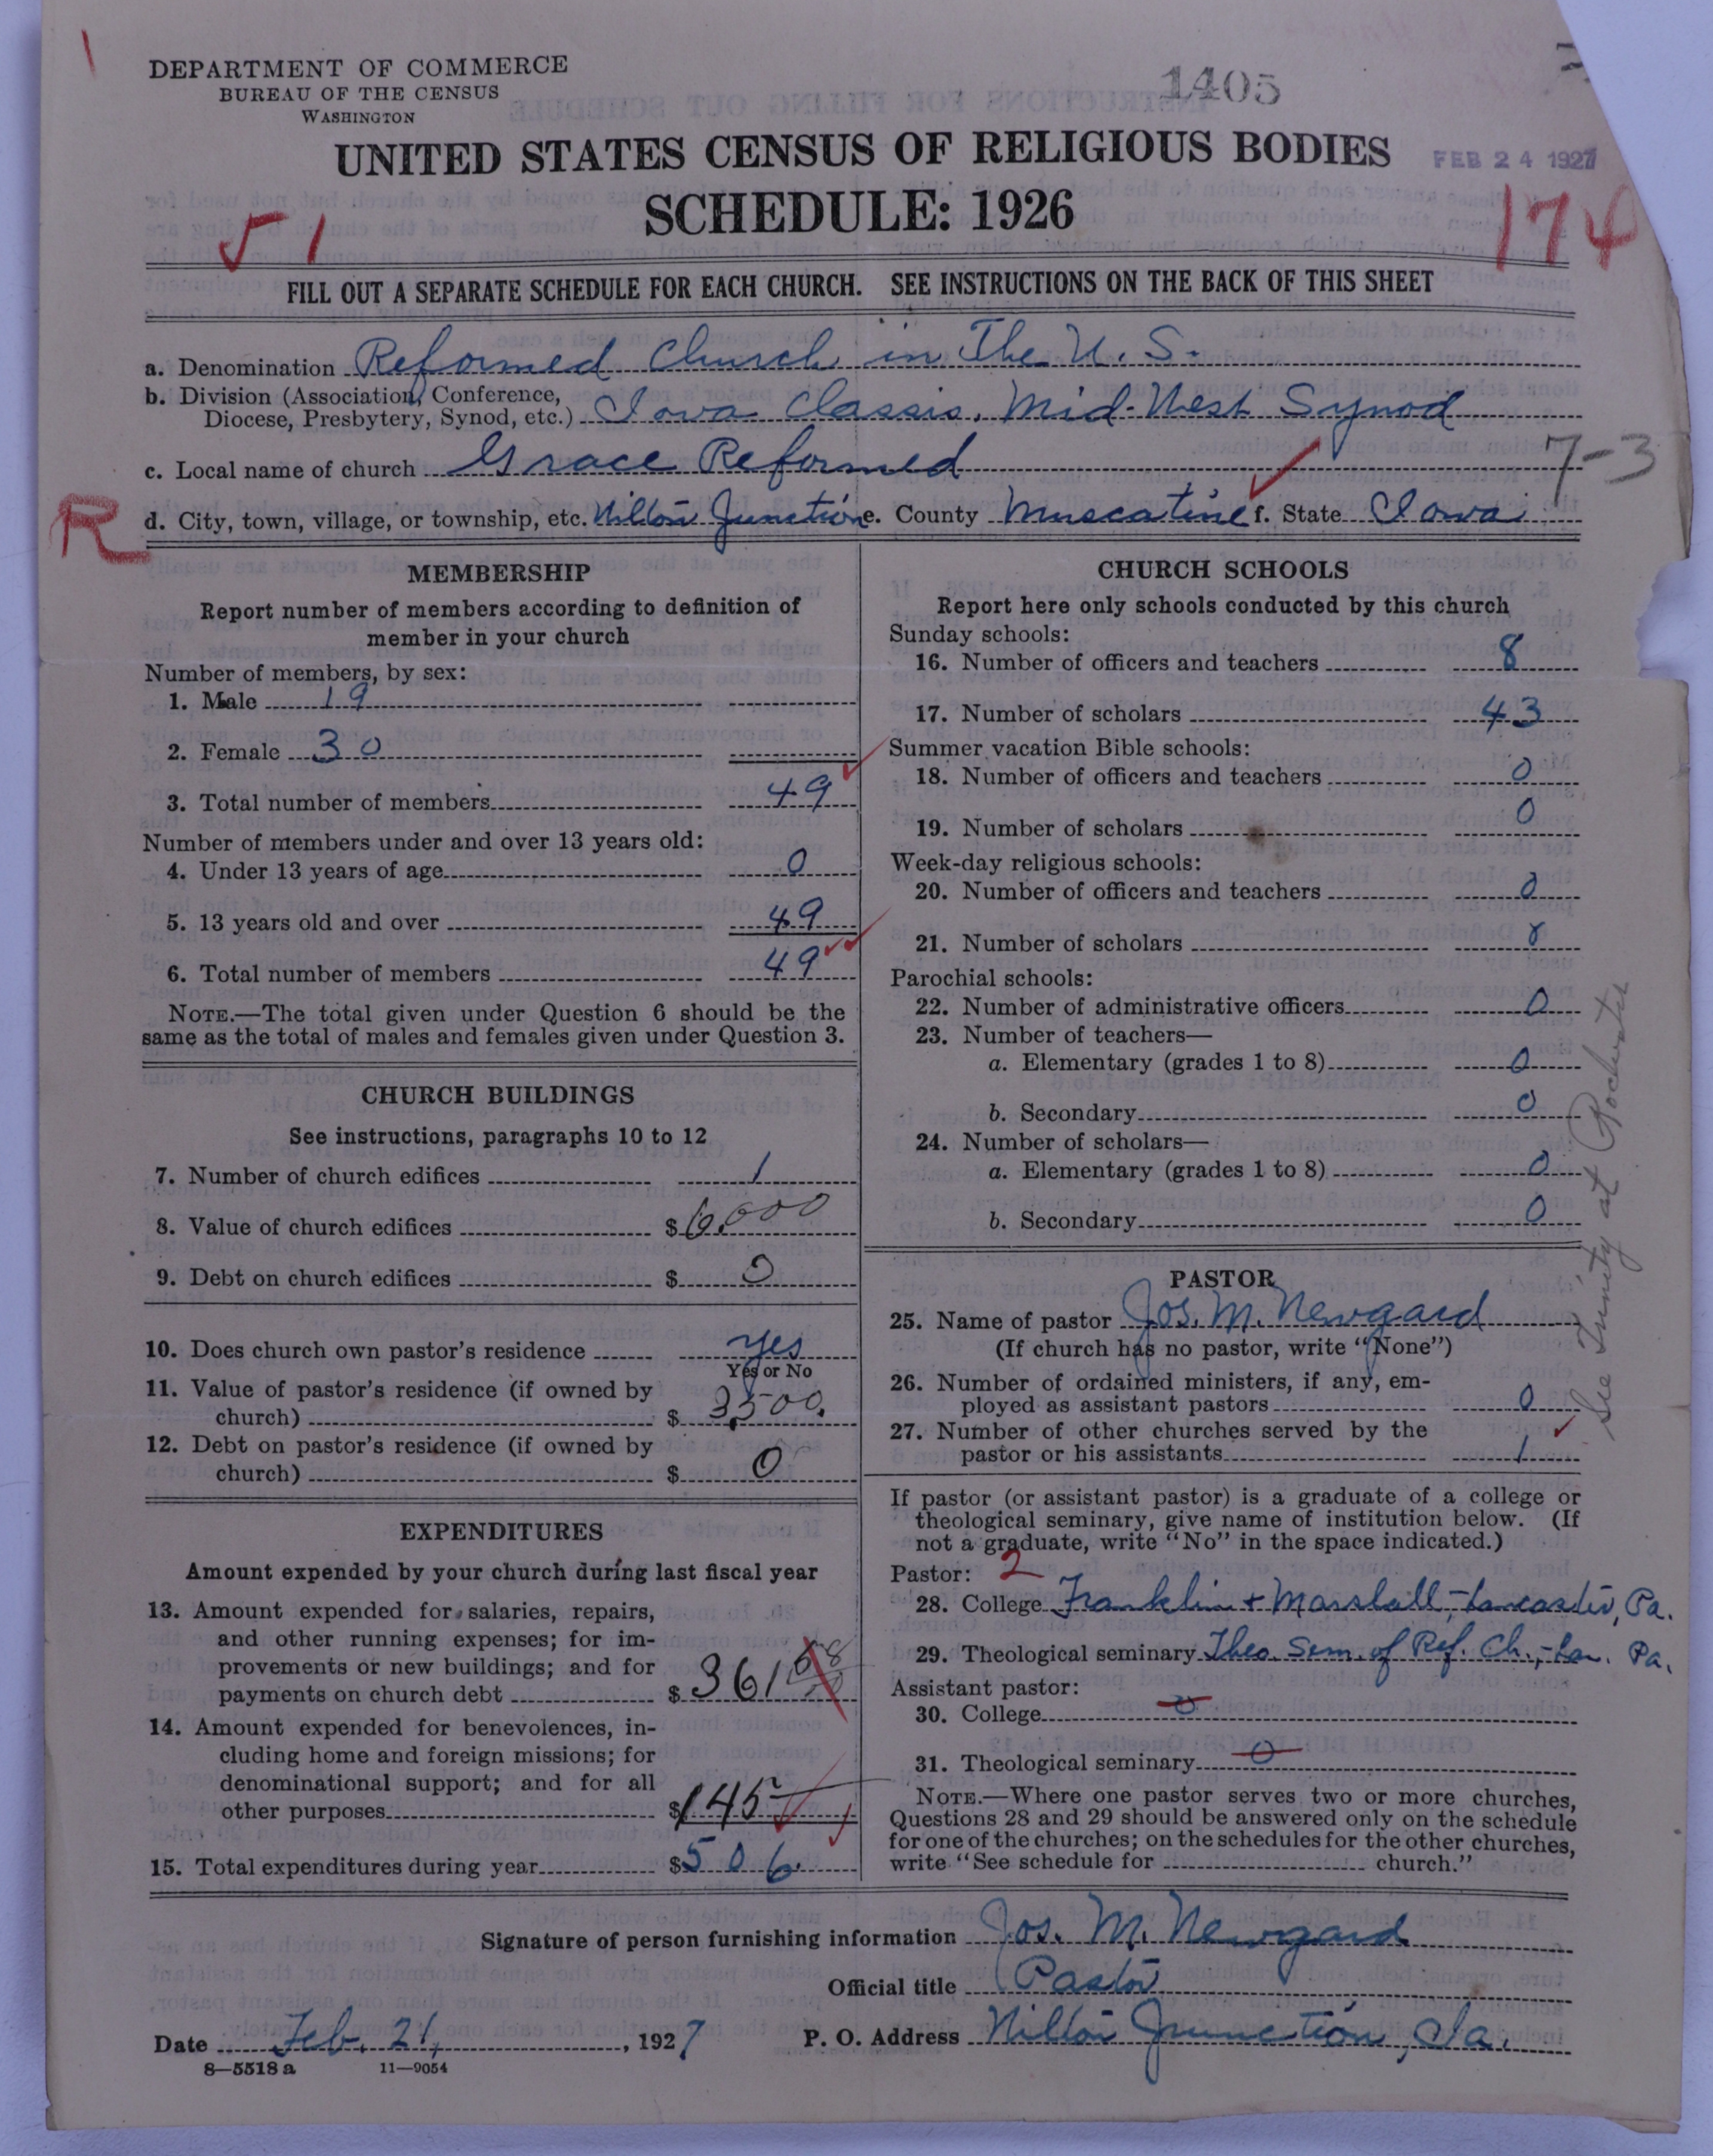 DEPARTMENT OF COMMERCE
BUREAU OF THE CENSUS
WASHINGTON
1405
UNITED STATES CENSUS OF RELIGIOUS BODIES
FEB 24 1927
SCHEDULE: 1926
51
174
FILL OUT A SEPARATE SCHEDULE FOR EACH CHURCH. SEE INSTRUCTIONS ON THE BACK OF THIS SHEET
a. Denomination Reformed Church in The U.S.
b. Division (Association, Conference, Diocese, Presbytery, Synod, etc.) Iowa Classis, Mid-West Synod
c. Local name of church Grace Reformed
7-3
R
d. City, town, village, or township, etc. Wilton Junction e. County Muscatine f. State Iowa
MEMBERSHIP
Report number of members according to definition of
member in your church
Number of members, by sex:
1. Male 19
2. Female 30
3. Total number of members 49
Number of members under and over 13 years old:
4. Under 13 years of age 0
5. 13 years old and over 49
6. Total number of members 49
NOTE.—The total given under Question 6 should be the
same as the total of males and females given under Question 3.
CHURCH BUILDINGS
See instructions, paragraphs 10 to 12
7. Number of church edifices 1
8. Value of church edifices $ 6,000
9. Debt on church edifices $ 0
10. Does church own pastor's residence yes
Yes or No
11. Value of pastor's residence (if owned by
church) $ 3,500.
12. Debt on pastor's residence (if owned by
church) $ 0
EXPENDITURES
Amount expended by your church during last fiscal year
13. Amount expended for salaries, repairs,
and other running expenses; for im-
provements or new buildings; and for
payments on church debt $ 361
14. Amount expended for benevolences, in-
cluding home and foreign missions; for
denominational support; and for all
other purposes $ 145
15. Total expenditures during year $ 506.
CHURCH SCHOOLS
Report here only schools conducted by this church
Sunday schools:
16. Number of officers and teachers 8
17. Number of scholars 43
Summer vacation Bible schools:
18. Number of officers and teachers 0
19. Number of scholars 0
Week-day religious schools:
20. Number of officers and teachers 0
21. Number of scholars
Parochial schools:
22. Number of administrative officers 0
23. Number of teachers—
a. Elementary (grades 1 to 8) 0
b. Secondary 0
24. Number of scholars—
a. Elementary (grades 1 to 8) 0
b. Secondary 0
PASTOR
25. Name of pastor Jos. M. Newgard
(If church has no pastor, write "None")
26. Number of ordained ministers, if any, em-
ployed as assistant pastors 0
27. Number of other churches served by the
pastor or his assistants 1
See Trinity at Rochester
If pastor (or assistant pastor) is a graduate of a college or
theological seminary, give name of institution below. (If
not a graduate, write "No" in the space indicated.)
Pastor: 2
28. College Franklin + Marshall, - Lancaster, Pa.
29. Theological seminary Theo. Sem. of Ref. Ch., - Lan. Pa.
Assistant pastor:
30. College 0
31. Theological seminary 0
NOTE.—Where one pastor serves two or more churches,
Questions 28 and 29 should be answered only on the schedule
for one of the churches; on the schedules for the other churches,
write "See schedule for church."
Signature of person furnishing information Jos. M. Newgard
Official title Pastor
Date Feb. 21, 1927 P. O. Address Wilton Junction, Ia.
8—5518 a 11—9054